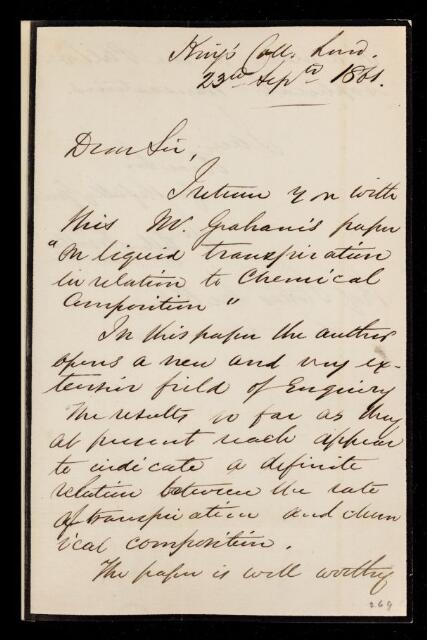 King's Coll. Lond.
23rd Septr 1861.
Dear Sir,
I return you with
this Mr. Graham's paper
"On liquid transpiration
in relation to Chemical
Composition"
In this paper the author
opens a new and very ex-
tensive field of Enquiry
The results so far as they
at present reach appear
to indicate a definite
relation between the rate
of transpiration and chem
ical composition.
The paper is well worthy
269